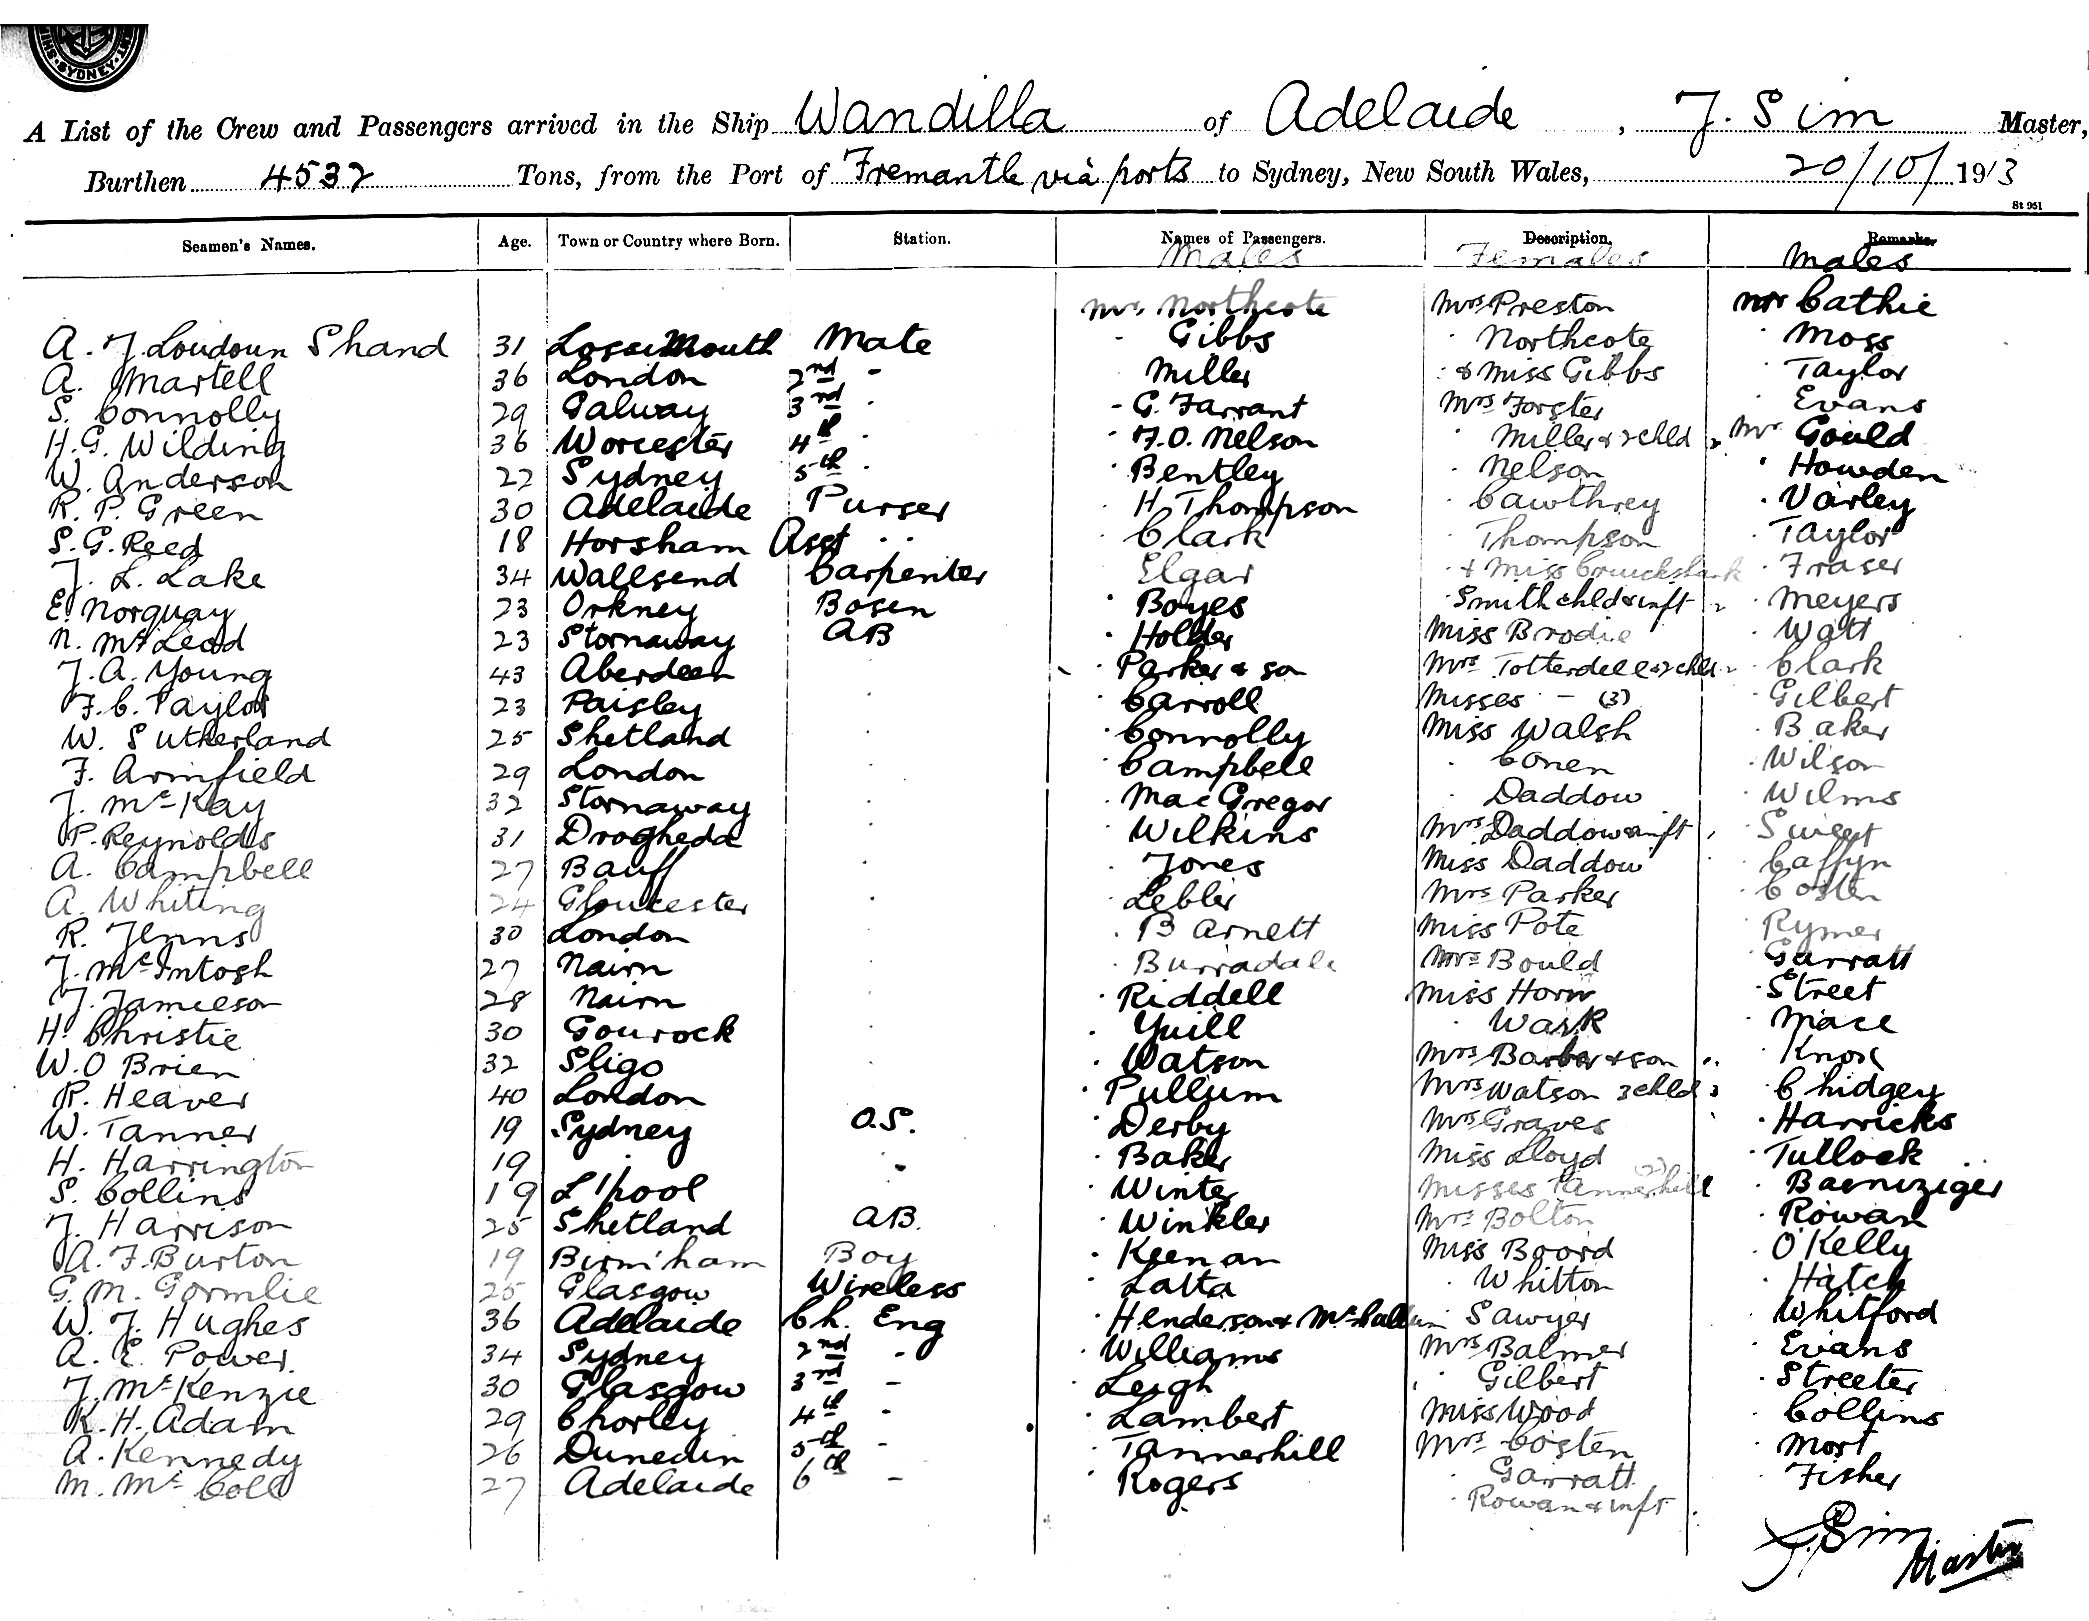 SYDNEY
A List of the Crew and Passengers arrived in the Ship Wandilla of Adelaide, J. Sim Master,
Burthen 4532 Tons, from the Port of Fremantle via ports to Sydney, New South Wales, 20/10/1913
St 951
Seamen's Names. Age. Town or Country where Born. Station. Names of Passengers. Description. Remarks.
Males Females Males
Mrs Northcote Mrs Preston Mr Cathie
A. J. Loudoun Shand 31 Lossiemouth Mate Gibbs Northcote Moss
A. Martell 36 London 2nd - Miller & Miss Gibbs Taylor
S. Connolly 29 Galway 3rd - G. Farrant Mrs Forster Evans
H. G. Wilding 36 Worcester 4th F. O. Nelson Miller & 2 chld 2 Mr Gould
W. Anderson 22 Sydney 5th Bentley Nelson Howden
R. P. Green 30 Adelaide Purser H Thompson Cawthrey Varley
S. G. Reed 18 Horsham Asst Clark Thompson Taylor
J. L. Lake 34 Wallsend Carpenter Elgar & Miss Cruickshank Fraser
E. Norquay 23 Orkney Bosen Boyes Smith chld & inft 2 Meyers
N. McLeod 23 Stornaway AB Holder Miss Brodie Watt
J. A. Young 43 Aberdeen Parker & son Mrs Totterdell & 2 chld 2 Clark
F. C. Taylor 23 Paisley Carroll Misses - (3) Gilbert
W. Sutherland 25 Shetland Connolly Miss Walsh Baker
F. Armfield 29 London Campbell Conen Wilson
J. McKay 32 Stornaway MacGregor Daddow Wilms
P. Reynolds 31 Drogheda Wilkins Mrs Daddow & inft Sweet
A. Campbell 27 Banff Jones Miss Daddow Caffyn
A. Whiting 24 Gloucester Lebler Mrs Parker Costen
R. Jenns 30 London Barnett Miss Pote Rymer
J. McIntosh 27 Nairn Burradale Mrs Bould Garratt
J. Jamieson 28 Nairn Riddell Miss Horn Street
H. Christie 30 Gourock Yuill Wark Mace
W. O Brien 32 Sligo Watson Mrs Barber & son Knox
R. Heaver 40 London Pullum Mrs Watson 3 chld 3 Chidgey
W. Tanner 19 Sydney O.S. Derby Mrs Graves Harricks
H. Harrington 19 Baker Miss Lloyd Tullock
S. Collins 19 L'pool Winter Misses Tannerhill (2) Baenziger
J. Harrison 25 Shetland AB. Winkler Mrs Bolton Rowan
A. F. Burton 19 Birm'ham Boy Keenan Miss Boord O'Kelly
G. M. Gormlie 25 Glasgow Wireless Latta Whitton Hatch
W. J. Hughes 36 Adelaide Ch. Eng Henderson & McCallum Sawyer Whitford
A. E. Power. 34 Sydney 2nd - Williams Mrs Balmer Evans
J. McKenzie 30 Glasgow 3rd - Leigh Gilbert Streeter
K. H. Adam 29 Chorley 4th - Lambert Miss Wood Collins
A. Kennedy 26 Dunedin 5th - Tannerhill Mrs Costen Mort
M. McColl 27 Adelaide 6th - Rogers Garratt Fisher
Rowan & inft
J. Sim
Master